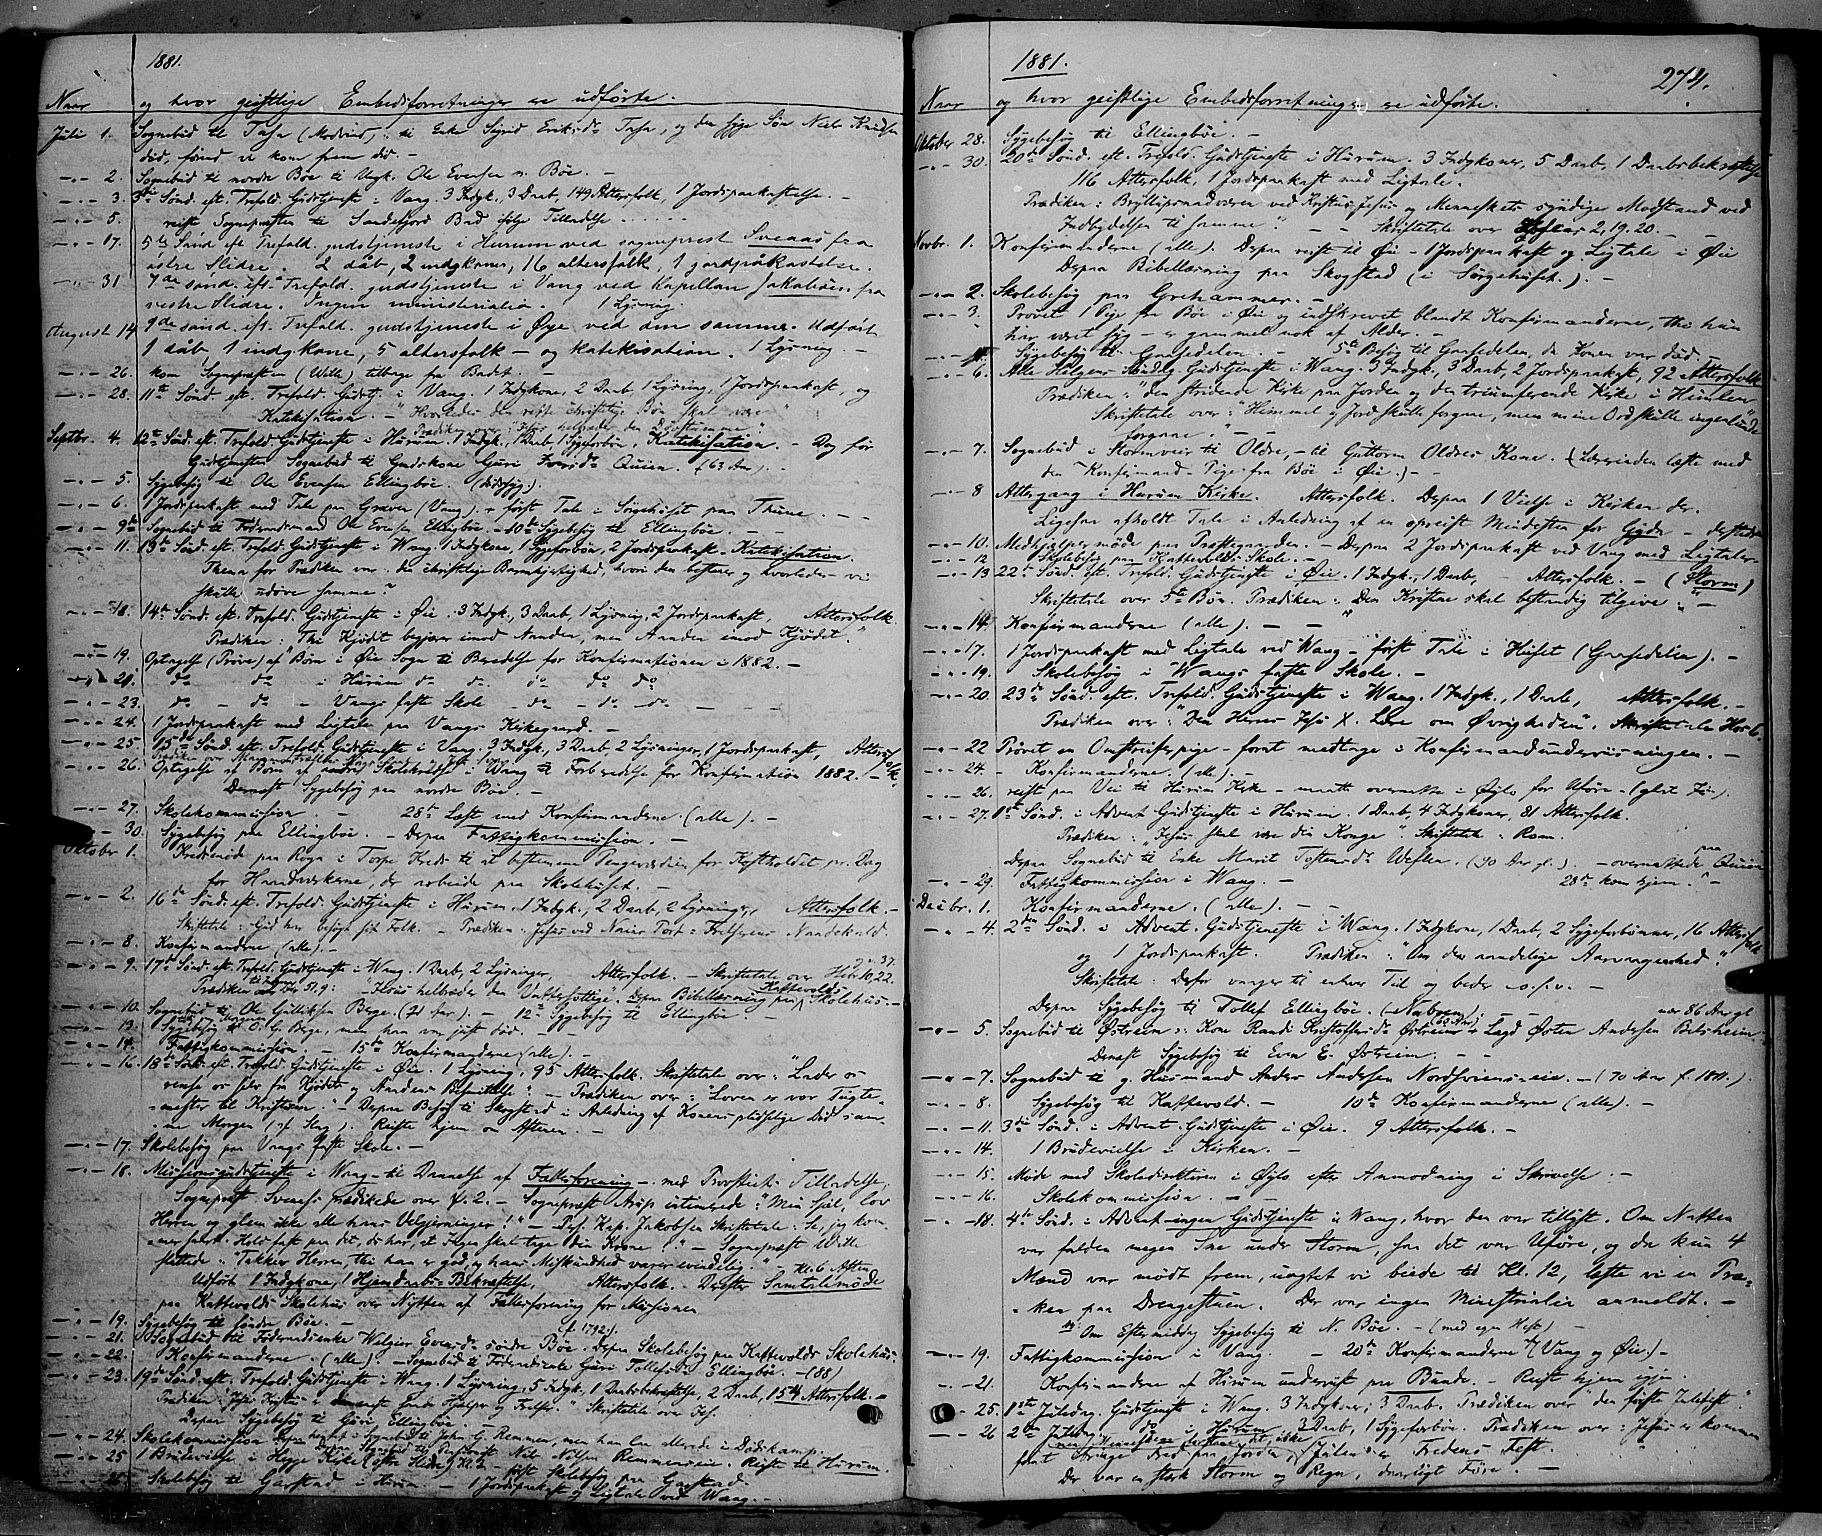 1881.
Naar og hvor geistlige Embedsforretninger ere udførte.
Juli 1. Sognebud til Tasa (Modvid), til Enke Sigrid Eriksdr Tasa, og den syge Søn Niels Knudsen
død, førend vi kom frem did. -
2. Sognebud til nordre Bøe til Ugk. Ole Evensen n. Bøe. -
3. 3die Sönd. eft. Trefold. Gudstjeneste i Vang. 3 Indgk., 3 Daab, 149 Altersfolk, 1 Jordspaakastelse. -
5. reiste Sognepræsten til Sandefjord Bad ifølge Tilladelse
17. 5te Sönd. eft Trefold. gudstjeneste i Hurum ved sogneprest Sveaas fra
østre Slidre. 2 dåb, 2 indgkoner, 16 altersfolk, 1 jordpåkastelse.
31 7de sönd. eft. Trefold. gudstjeneste i Vang ved Kapellan Jakobsen fra
vestre Slidre. Ingen ministerialia. 1 Lysning.
August 14 9de sönd. eft. Trefold. gudstjeneste i Øye ved den samme. Udført
1 dåb, 1 indgkone, 5 altersfolk - og katekisation. 1 Lysning -
26. kom Sognepræsten (Wille) tilbage fra Badet. -
28. 11te Sönd. eft. Trefold. Gudstj. i Vang. 1 Indgkone, 2 Daab, 1 Lysning, 1 Jordspaakast, og
Katekisation. - "Hvorledes den rette christelige Bön skal være"
Septbr. 4. 12te Sönd. eft. Trefold. Gudstjeneste i Hurum. 1 Indgk., 1 Daab, 1 Sygeforbøn, Katekisation. - Dag før
Gudstjenesten Sognebud til Gaardkone Guri Iversdr Quien. (63 Aar). -
5. Sygebesøg til Ole Evensen Ellingbøe. (dødssyg). -
6. 1 Jordspaakast med Tale paa Graven (Vang) + først Tale i Sørgehuset paa Thune. -
9de Sognebud til Föderaadsmand Ole Evensen Ellingbøe. - 10de Sygebesøg til Ellingbøe. -
11. 13de Sönd. eft. Trefold. Gudstjeneste i Wang. 1 Indgkone, 1 Sygeforbøn, 2 Jordspaakast - Katekisation.
Thema for Prædiken var: den christelige Barmhjertighed, hvori den bestaaer og hvorledes vi
skulle udøve samme?
18. 14de Sönd. eft. Trefold. Gudstjeneste i Øie. 3 Indgk., 3 Daab, 1 Lysning, 2 Jordspaakast, Altersfolk.
Prædiken: "Thi Kjødet begjærer imod Aanden, men Aanden imod Kjødet."
19. Optagelse (Prøve) af Børn i Øie Sogn til Beredelse for Konfirmationen i 1882. -
21. do - do - i Hurum do do do do do
23. do - do - Vangs faste Skole - do - do do
24. 1 Jordspaakast med Ligtale paa Vangs Kirkegaard. -
25 15de Sönd. eft. Trefold. Gudstjeneste i Vang. 3 Indgk, 3 Daab, 2 Lysninger, 1 Jordspaakast, Altersfolk.
26. Optagelse af Børn af Skolekreds i Wang til Forberedelse for Konfirmation 1882. -
Dernæst Sygebesøg paa nordre Bøe. -
27. Skolekommission - 28de Læst med Konfirmanderne (alle). -
30. Sygebesøg paa Ellingbøe. - Derpaa Fattigkommission. -
Oktober 1. Kredsmøde paa Rogn i Torpe Kreds til at bestemme Pengeværdien for Kostholdet pr. Dag
for Haandværkerne, der arbeide paa Skolehuset. -
2. 16de Sönd. eft. Trefold. Gudstjeneste i Hurum. 1 Indgk., 2 Daab, 2 Lysninger, Altersfolk. -
Skriftetale: Gud har besøgt sit Folk. - Prædiken: Jesus ved Nains Port: Frelserens Naadekald.
8. Konfirmanderne (alle). -
9. 17de Sönd. eft. Trefold. Gudstjeneste i Wang. 1 Daab, 2 Lysninger, Altersfolk. - Skriftetale over Hebr 10,22.
Prædiken: "Jesus helbreder den Vattersottige". derpaa Bibellæsning paa Kattevolds Skolehus. -
10. Sognebud til Ole Gulliksen Berge. (21 Aar). - 12te Sygebesøg til Ellingbøe -
13. Sygebesøg til O. G. Berge, men han var just død. -
14. Fattigkommission. - 15de Konfirmanderne (alle). -
16. 18de Sönd. eft. Trefold. Gudstjeneste i Øie. 1 Lysning, 95 Altersfolk. Skriftetale over: "Lader os
rense os selv fra Kjødets og Aandens Besmittelse" - Prædiken over: "Loven er vor Tugte-
mester til Kristum." - Derpaa Besøg til Skogstad i Anledning af Konens pludselige Død sam-
me Morgen (af Slag). Reiste hjem om Aftenen. -
17. Skolebesøg paa Vangs faste Skole. -
18. Missionsgudstjeneste i Wang - til Dannelse af Fællesforening - med Provstiets Tilladelse,
Sognepræst Sveaas prædikede over Ψ. 2. - Sognepræst Arup intimerede: "Min Sjæl, lov
Herren og glem ikke alle hans Velgjerninger!" - Pers. Kap. Jakobsen Skriftetale: Se, jeg kom-
mer snart. Hold fast paa det, du har, at Ingen skal tage din Krone!" - Sognepræst Wille
sluttede "Takker Herren, thi han er god, og hans Miskundhed varer evindelig." - Kl. 6 Aften
Udført 1 Indgkone, 1 Hjemdaabs-Bekræftelse, Altersfolk. - Derefter Samtalemøde
paa Kattevolds Skolehus over Nytten af Fællesforening for Missionen
19. Sygebesøg til søndre Bøe. - (f. 1792).
21. Sognebud til Föderaadsenke Velgjer Evensdr søndre Bøe. Derpaa Skolebesøg paa Kattevolds Skolehus.
22. Konfirmanderne. (alle) - Sognebud til Föderaadsenke Guri Tollefsdr Ellingbøe. - (88)
23. 19de Sönd. eft. Trefold. Gudstjeneste i Wang. 1 Lysning, 5 Indgk, 1 Daabsbekræftelse, 2 Daab, 154 Altersfolk. -
Prædiken: "Jesus Kristus er vor Hjælper og Frelser." Skriftetale over Jes.
Derpaa Sygebesøg til Guri Ellingbøe. -
24. Skolekommission. Derpaa Sognebud til John G. Remmen, men han laa allerede i Dødskamp.
25 1 Brudevielse i Hegge Kirke (østre Slidre) Kl. 2 Nils Nilsen Remmeneie. Reiste til Hurum.
26. Skolebesøg til Garstad i Hurum. - 1 Jordspaakast og Ligtale ved Wang. -
1881. 274.
Naar og hvor geistlige Embedsforretninger ere udførte.
Oktober 28. Sygebesøg til Ellingbøe. -
30. 20de Sönd. eft. Trefold. Gudstjeneste i Hurum. 3 Indgkoner, 5 Daab, 1 Daabsbekræftelse
116 Altersfolk, 1 Jordspaakast med Ligtale.
Prædiken: Bryllupsnadveren ved Kristus Jesus og Menneskets syndige Modstand ved
Indbydelsen til samme". - - Skriftetale over Hoseas 2, 19. 20. -
Novbr. 1. Konfirmanderne (alle). Derpaa reist til Øie - 1 Jordspaakast og Ligtale i Øie
Derpaa Bibellæsning paa Skogstad (i Sørgehuset.). -
2. Skolebesøg paa Grihammer. -
3. Prøvet 1 Pige fra Bøe i Øie og indskrevet blandt Konfirmanderne, thi hun
har været syg - er gammel nok af Alder. -
4. Sygebesøg til Grafsedelen. - 5te Besøg til Grafsedelen, da Konen var død.
6. Alle Helgens Søndag Gudstjeneste i Wang. 3 Indgk., 3 Daab, 2 Jordspaakast, 92 Altersfolk
Prædiken: "den stridende Kirke paa Jorden og den triumferende Kirke i Himlen
Skriftetale over: "Himmel og Jord skulle forgaae, men mine Ord skulle ingenlunde
forgaae." -
7. Sognebud i Stormveir til Oldre, - til Guttorm Oldres Kone. (Lærerinden læste med
den Konfirmand-Pige fra Bøe i Øie.) -
8 Altergang i Hurum Kirke. Altersfolk. Derpaa 1 Vielse i Kirken der.
Ligesaa afholdt Tale i Anledning af en opreist Mindesten for Gyda - dersteds
10. Medhjælpermøde paa Præstegaarden. - Derpaa 2 Jordspaakast ved Vang med Ligtaler -
12 Skolebesøg paa Kattevolds Skole. -
13 22de Sönd. eft. Trefold. Gudstjeneste i Øie. 1 Indgk., 1 Daab, - Altersfolk. - (Storm)
Skriftetale over 5te Bøn. Prædiken: "Den Kristne skal bestandig tilgive". -
14. Konfirmanderne (alle). -
17. 1 Jordspaakast med Ligtale ved Wang - först Tale i Huset (Grafsedelen). -
19. Skolebesøg i Wangs faste Skole. -
20. 23de Sönd. eft. Trefold. Gudstjeneste i Wang. 1 Indgk., 1 Daab, Altersfolk. -
Prædiken over: "Den Herres Jesu X. Lære om Øvrigheden". Skriftetale Hos 6.
22 Prøvet en Omstreiferpige - forat medtage i Konfirmandundervisningen. -
24. Konfirmanderne. (alle). -
26. reist paa Vei til Hurum Kirke - maatte overnatte i Øilo for Uføre - (glat Is).
27. 1ste Sönd. i Advent Gudstjeneste i Hurum. 1 Daab, 4 Indgkoner, 81 Altersfolk.
Prædiken: "Jesus skal være din Konge". Skriftetale: Rom.
derpaa Sognebud til Enke Marit Tostensdr Weflen. (90 Aar gl.) - overnattede paa Quien
28de kom hjem. -
29. Fattigkommission i Wang. -
Decbr. 1. Konfirmanderne. (alle). -
4. 2den Sönd. i Advent. Gudstjeneste i Wang. 1 Indgkone, 1 Daab, 2 Sygeforbønner, 16 Altersfolk
og 1 Jordspaakast. Prædiken: "Om den aandelige Aarvaagenhed."
Skriftetale: Derfor vaager til enhver Tid og beder o. s. v. -
Derpaa Sygebesøg til Tollef Ellingbøe. (Naboen) -
5. Sognebud til Østreim: Kone Randi Kristoffersdr Østreim (65 Aar) + Lagd Østen Andersen Belsheim nær 86 Aar gl.
Dernæst Sygebesøg til Even E. Østreim. -
7. Sognebud til g. Husmand Anders Andersen Nordsveenseie. - (70 Aar f. 1811.)
8. Sygebesøg til Kattevold. - 10de Konfirmanderne (alle). -
11. 3die Sönd. i Advent. Gudstjeneste i Øie. 9 Altersfolk. -
14. 1 Brudevielse i Kirken. -
15. Møde med Skoledirektøren i Øylo efter Anmodning i Skrivelse. -
16. Skolekommission. -
18. 4de Sönd. i Advent - ingen Gudstjeneste i Wang, hvor den var tillyst. Om Natten
var falden megen Sne under Storm, saa det var Uføre, og da kun 4
Mænd var mødt frem, uagtet vi biede til Kl. 12, læste vi en Præ-
ken paa Drengestuen. Der var ingen Ministerialia anmeldt. -
Om Eftermiddag Sygebesøg til N. Bøe. - (med egen Hest) -
19. Fattigkommission i Vang. - 20de Konfirmanderne (Vang og Øie). -
21. Konfirmanderne af Hurum undervist paa Bunde. - Reist hjem igjen.
25. 1ste Juledag. Gudstjeneste i Wang. 3 Indgkoner, 3 Daab. Prædiken over "den første Julefest".
26 2den Juledag Do i Hurum 3 Daab, 1 Sygeforbøn. Prædiken over: Jesus er kommen
forat bringe Fred paa Jorden, Julen er Fredens Fest.
Der var en stærk Storm og Regn, daarligt Føre. -